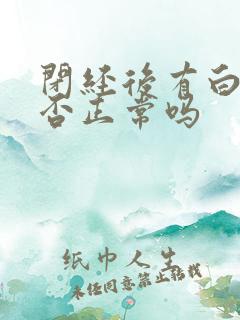 閉經後有白
否正常吗
纸巾人生
未经同意禁止转载